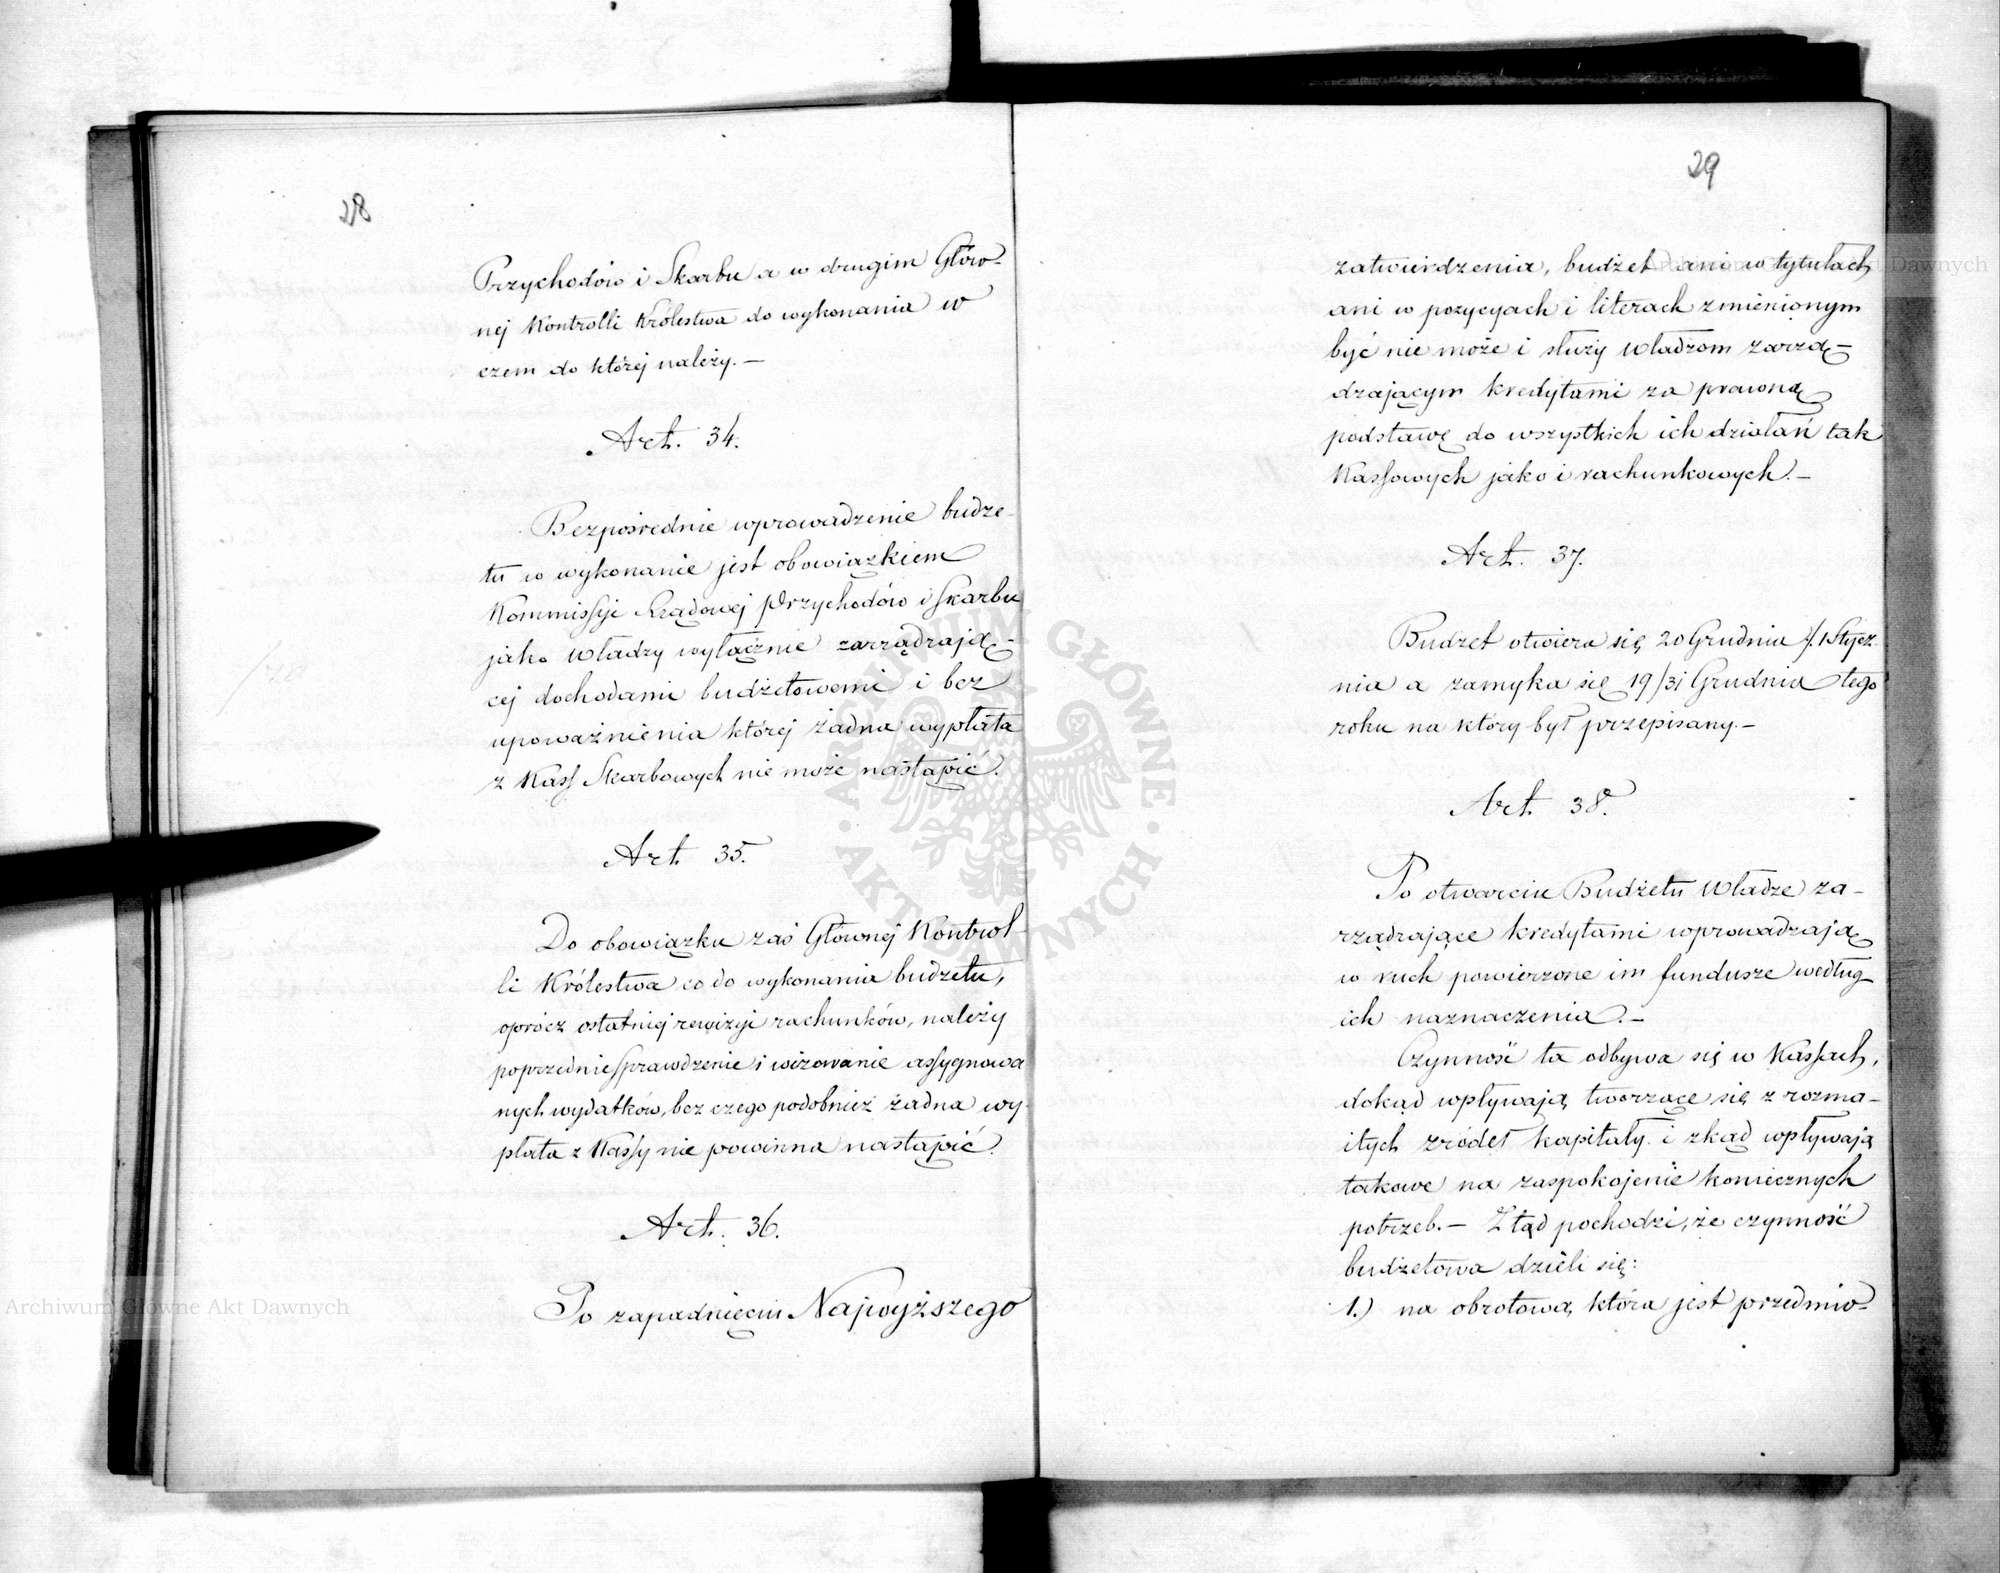 28
Przychodów i Skarbu a w drugim Głów-
nej Kontrolli Królestwa do wykonania w
czem do której należy. —
Art. 34.
Bezpośrednie wprowadzenie budże-
tu w wykonanie jest obowiązkiem
Kommissyi Rządowej Przychodów i Skarbu
jako Władzy wyłącznie zarządzają-
cej dochodami budżetowemi i bez
upoważnienia której żadna wypłata
z Kass Skarbowych nie może nastąpić.
Art. 35.
Do obowiązku zaś Głównej Kontrol-
li Królestwa co do wykonania budżetu,
oprócz ostatniej rewizyi rachunków, należy
poprzednie sprawdzenie i wizowanie assygnowa
nych wydatków, bez czego podobnież żadna wy-
płata z Kassy nie powinna nastąpić.
Art. 36.
Po zapadnięciu Najwyższego
29
zatwierdzenia, budżet ani w tytułach
ani w pozycyach i literach zmienionym
być nie może i służy Władzom zarzą-
dzającym kredytami za prawną
podstawę do wszystkich ich działań tak
Kassowych jako i rachunkowych. —
Art. 37.
Budżet otwiera się 20 Grudnia /1 Stycz-
nia a zamyka się 19/31 Grudnia tego
roku na który był przepisany. —
Art. 38.
Po otwarciu Budżetu Władze za-
rządzające kredytami wprowadzają
w ruch powierzone im fundusze według
ich naznaczenia. —
Czynność ta odbywa się w Kassach,
dokąd wpływają tworzące się z rozma-
itych źródeł kapitały i zkąd wpływają
takowe na zaspokojenie koniecznych
potrzeb. — Ztąd pochodzi, że czynność
budżetowa dzieli się:
1.) na obrotową, która jest przedmio-
ARCHIWUM GŁÓWNE
AKT DAWNYCH
Archiwum Główne Akt Dawnych
Archiwum Główne Akt Dawnych